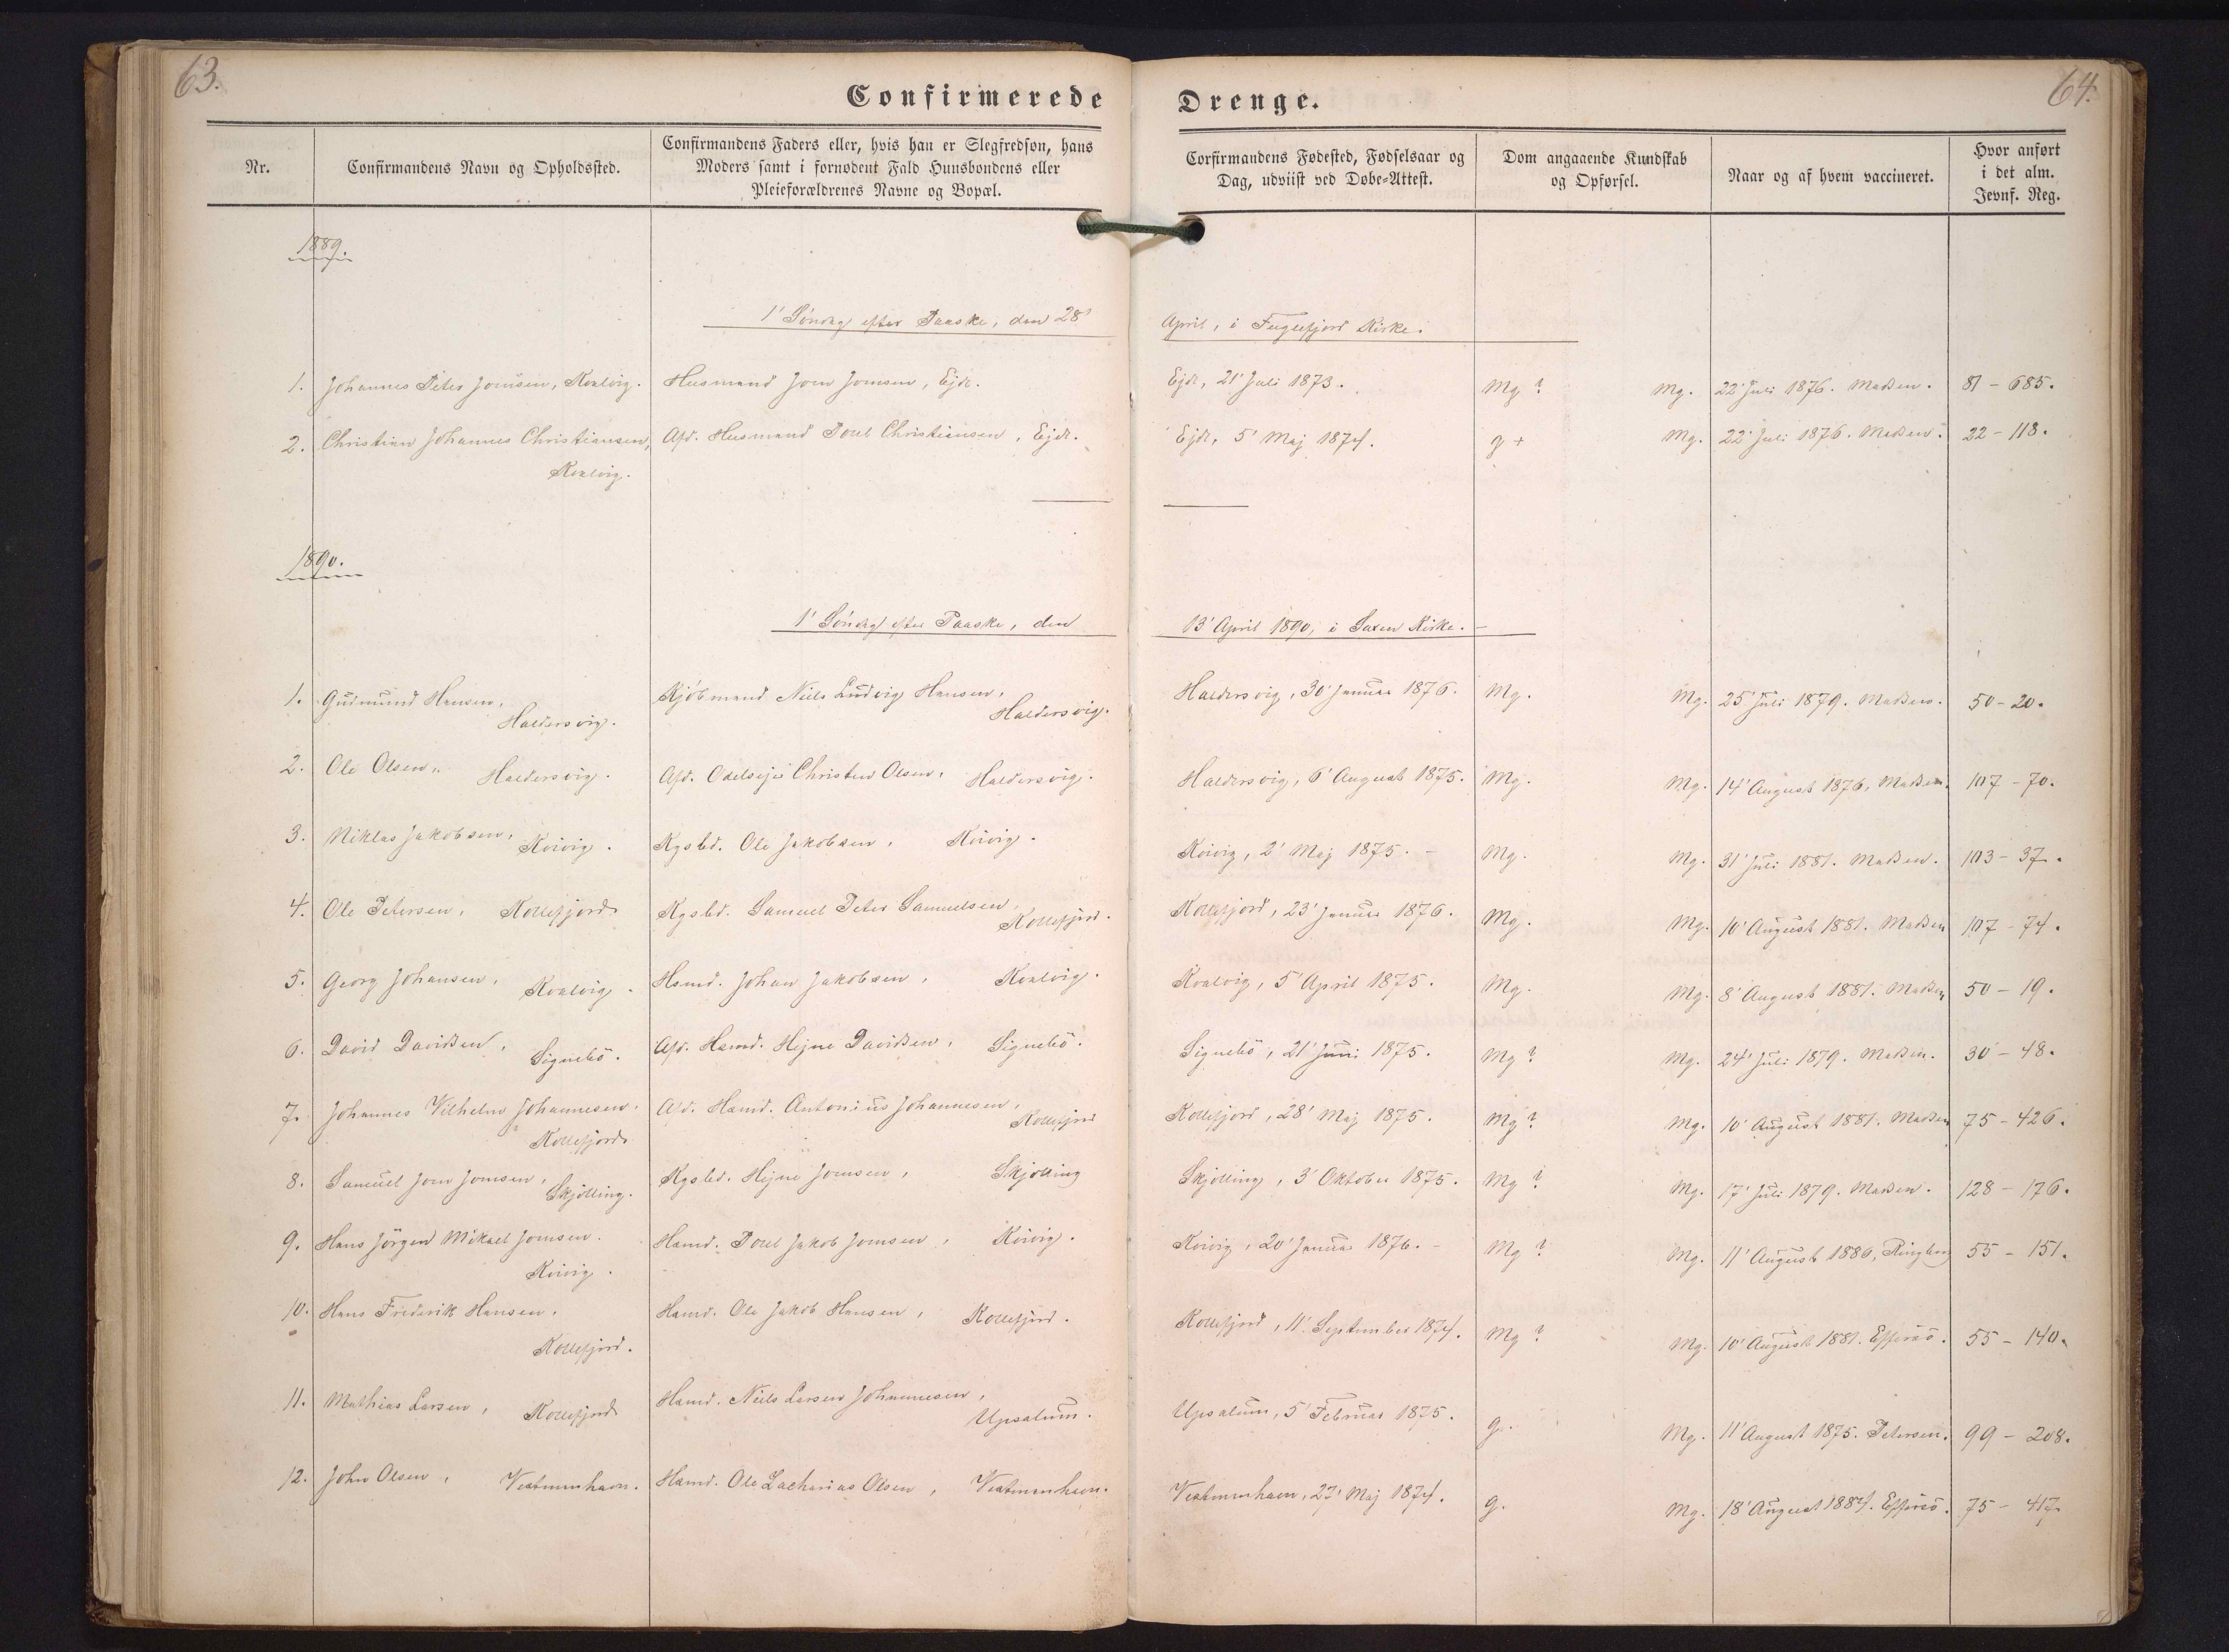 63.
64.
Confirmerede Drenge.
Nr.
Confirmandens Navn og Opholdssted.
Confirmandens Faders eller, hvis han er Slegfredsøn, hans
Moders samt i fornødent Fald Huusbondens eller
Pleieforældrenes Navne og Bopæl.
Corfirmandens Fødested, Fødselsaar og
Dag, udviist ved Døbe-Attest.
Dom angaaende Kundskab
og Opførsel.
Naar og af hvem vaccineret.
Hvor anført
i det alm.
Jevnf. Reg.
1889.
1' Söndag efter Paaske, den 28' April, i Fuglefjord Kirke.
1. Johannes Peter Joensen, Kvalvig. Husmand Joen Joensen, Ejde. Ejde, 21' Juli 1873. Mg ? Mg. 22' Juli 1876. Madsen. 81 - 685.
2. Christian Johannes Christiansen, Afd. Husmand Poul Christiansen, Ejde. Ejde, 5' Maj 1874. g + Mg. 22' Juli 1876. Madsen. 22 - 118.
Kvalvig.
1890.
1' Söndag efter Paaske, den 13' April 1890, i Saxen Kirke.
1. Gudmund Hansen, Kjöbmand Niels Ludvig Hansen, Haldersvig, 30' Januar 1876. Mg. Mg. 25' Juli 1879. Madsen. 50 - 20.
Haldersvig. Haldersvig.
2. Ole Olsen, Haldersvig. Afd. Odelsejer Christen Olsen, Haldersvig. Haldersvig, 6' August 1875. Mg. Mg. 14' August 1876, Madsen. 107 - 70.
3. Niklas Jakobsen, Kvivig. Kgsbd. Ole Jakobsen, Kvivig. Kvivig, 2' Maj 1875. - Mg. Mg. 31' Juli 1881. Madsen. 103 - 37.
4. Ole Petersen, Kollefjord Kgsbd. Samuel Peter Samuelsen, Kollefjord, 23' Januar 1876. Mg. Mg. 10' August 1881. Madsen 107 - 74.
Kollefjord.
5. Georg Johansen, Kvalvig. Hsmd. Johan Jakobsen, Kvalvig. Kvalvig, 5' April 1875. Mg. Mg. 8' August 1881. Madsen 50 - 19.
6. David Davidsen, Signebö. Afd. Hsmd. Hejne Davidsen, Signebö. Signebö, 21' Juni 1875. Mg ? Mg. 24' Juli 1879. Madsen. 30 - 48.
7. Johannes Vilhelm Johannesen. Afd. Hsmd. Antonius Johannesen, Kollefjord, 28' Maj 1875. Mg ? Mg. 10' August 1881. Madsen 75 - 426.
Kollefjord Kollefjord
8. Samuel Joen Joensen, Skjelling. Kgsbd. Hejne Joensen, Skjelling Skjelling, 3' Oktober 1875. Mg ? Mg. 17' Juli 1879. Madsen. 128 - 176.
9. Hans Jörgen Mikael Joensen. Hsmd. Poul Jakob Joensen, Kvivig. Kvivig, 20' Januar 1876. - Mg ? Mg. 11' August 1886, 55 - 151.
Kvivig.
10. Hans Frederik Hansen. Hsmd. Ole Jakob Hansen, Kollefjord. Kollefjord, 11' September 1874. Mg ? Mg. 10' August 1881. Effersö. 55 - 140.
Kollefjord.
11. Mathias Larsen, Kollefjord Hsmd. Niels Larsen Johannesen, Upsalum, 5' Februar 1875. g. Mg. 11' August 1875. Petersen. 99 - 208.
Upsalum.
12. John Olsen, Vestmenhavn. Hsmd. Ole Zacharias Olsen, Vestmenhavn. Vestmenhavn, 27' Maj 1874. g. Mg. 18' August 1884. Effersö. 75 - 417